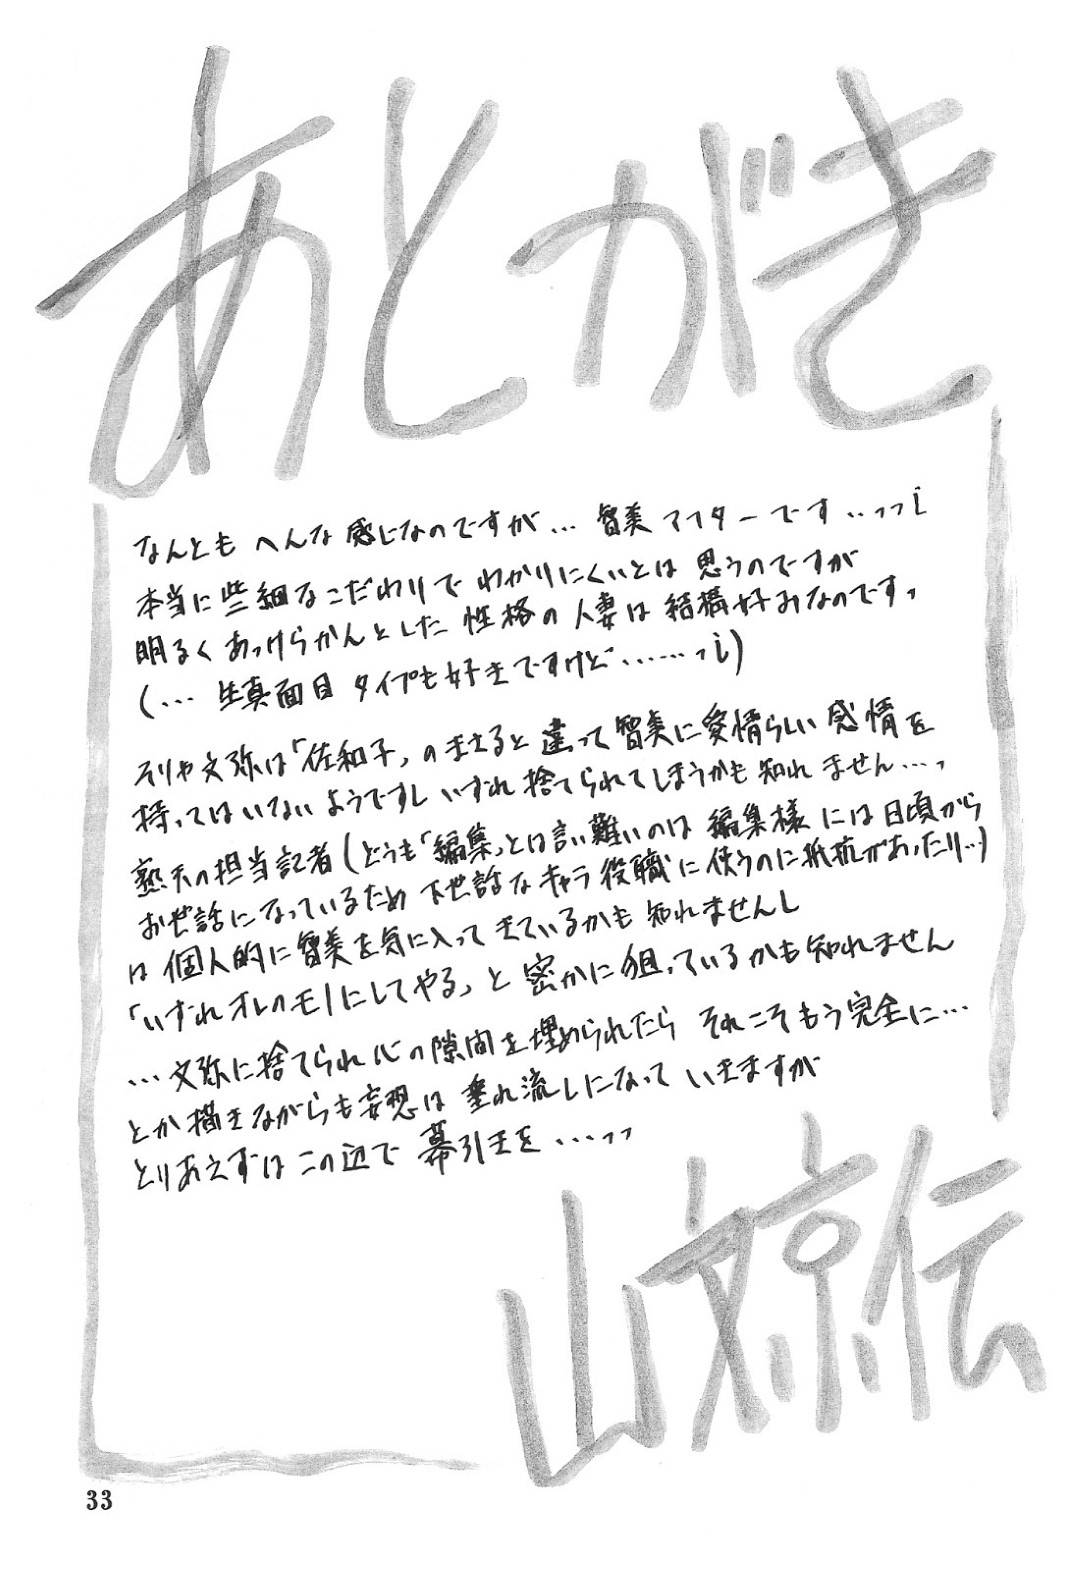 あとがき
なんとも へんな 感じなのですが… 智美 アフターです‥‥っっ；
本当に些細なこだわりで わかりにくいとは 思うのですが
明るく あっけらかんとした 性格の 人妻は 結構好みなのです。
(… 生真面目 タイプも好きですけど‥‥‥っ；)
そりゃ文弥は「佐和子」のまさると 違って 智美に愛情らしい 感情を
持ってはいないようですし いずれ 捨てられてしまうかも 知れません…。
熟天の担当記者(どうも「編集」とは言い難いのは 編集様 には日頃から
お世話になっているため 下世話な キャラ 役職に 使うのに抵抗があったり…)
は 個人的に 智美を気に入って きているかも 知れませんし
「いずれ オレのモノにしてやる」と 密かに 狙っているかも知れません
…文弥に捨てられ 心の隙間を埋められたら それこそもう完全に…
とか描きながらも妄想は 垂れ流しになって いきますが
とりあえずは この辺で 幕引きを …っっ
山文京伝
33